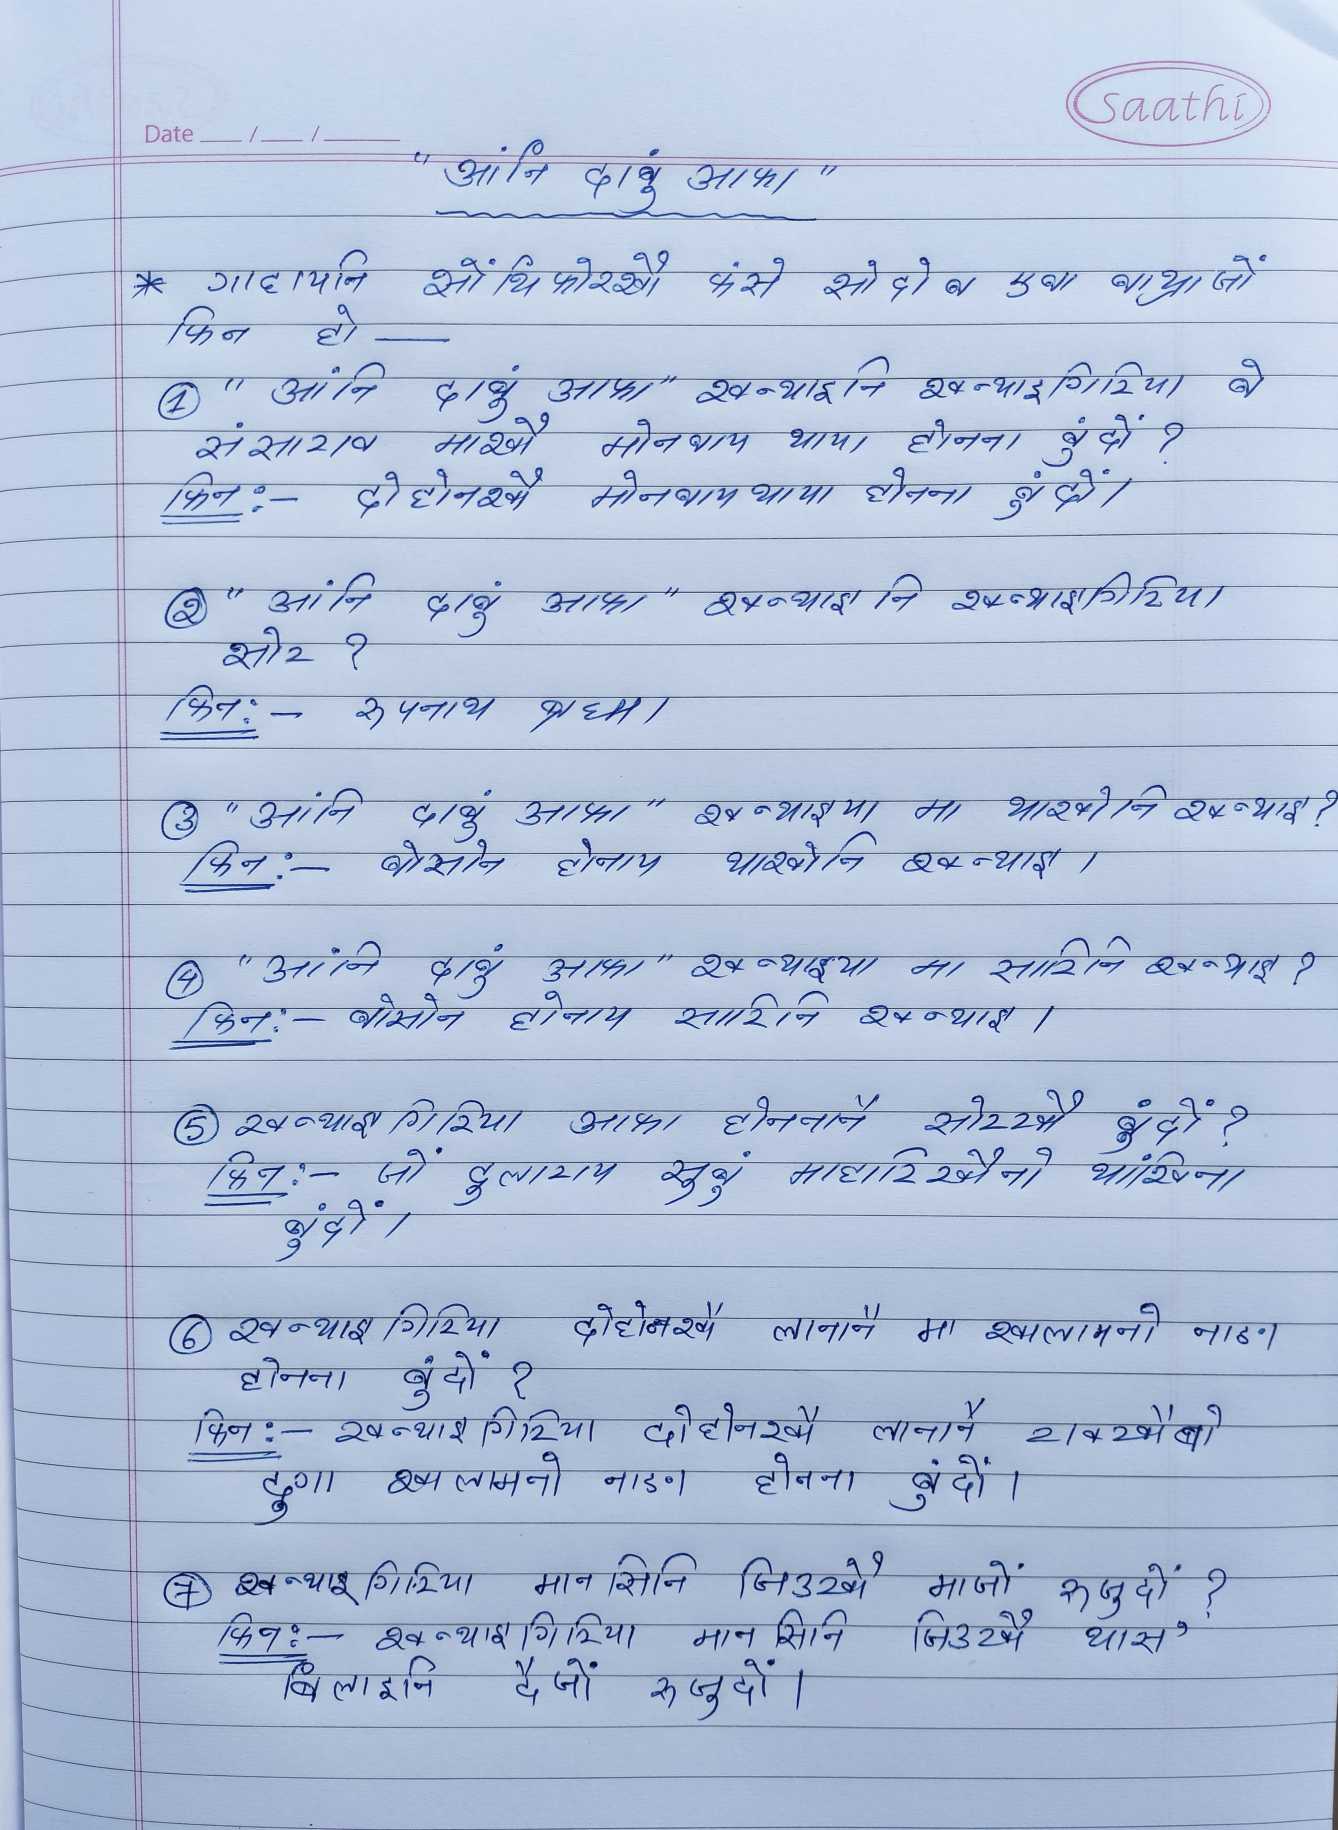 saathi
Date __/__/____
"आंनि दाबुं आफा"
* गाहायनि सोंथिफोरखौ फंसे सोदोब एबा बाथ्राजों
फिन हो —
① "आंनि दाबुं आफा" खन्थाइनि खन्थाइगिरिया बे
संसाराव माखौ मोनबाय थाया होनना बुंदों?
फिन:- दोहोनखौ मोनबाय थाया होनना बुंदों।
② "आंनि दाबुं आफा" खन्थाइनि खन्थाइगिरिया
सोर?
फिन:- रुपनाथ ब्रह्म।
③ "आंनि दाबुं आफा" खन्थाइया मा थाखोनि खन्थाइ?
फिन:- बोसोन होनाय थाखोनि खन्थाइ।
④ "आंनि दाबुं आफा" खन्थाइया मा सारिनि खन्थाइ?
फिन:- बोसोन होनाय सारिनि खन्थाइ।
⑤ खन्थाइगिरिया आफा होननानै सोरखौ बुंदों?
फिन:- जों दुलाराय सुबुं माहारिखौनो थांखिना
बुंदों।
⑥ खन्थाइगिरिया दोहोनखौ लानानै मा खालामनो नाङा
होनना बुंदों?
फिन:- खन्थाइगिरिया दोहोनखौ लानानै रावखौबो
दुगा खालामनो नाङा होनना बुंदों।
⑦ खन्थाइगिरिया मानसिनि जिउखौ माजों रुजुदों?
फिन:- खन्थाइगिरिया मानसिनि जिउखौ थास'
बिलाइनि दैजों रुजुदों।